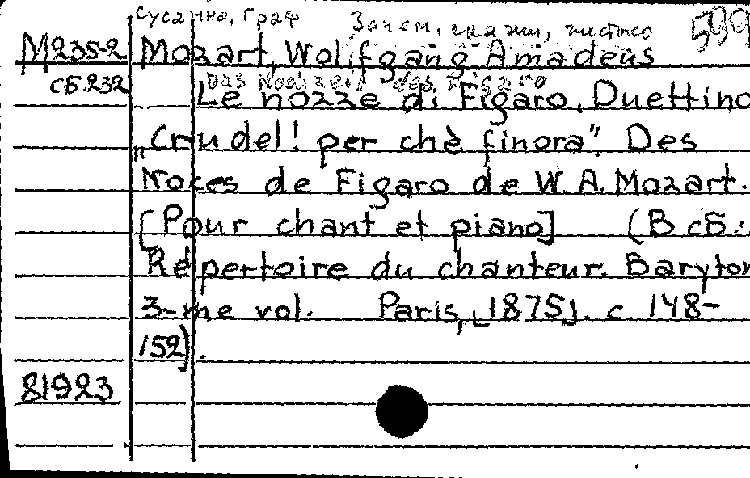 Сусанна, Граф Зачем, скажи, жестоко 599
М 235-2 Mozart, Wolfgang Amadeus
Das Hochzeit des Figaro
сб.232 Le nozze di Figaro. Duettino
„Crudel! per chè finora". Des
Noces de Figaro de W. A. Mozart.
[Pour chant et piano] (В сб.:
Répertoire du chanteur. Baryton
3-me vol. Paris, [1875]. с 148-
152).
81923